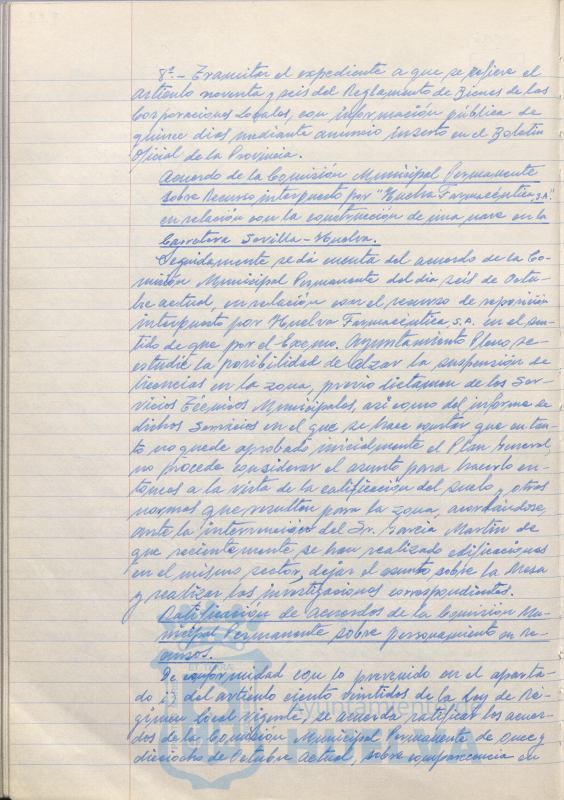 8º.- Tramitar el expediente a que se refiere el
artículo noventa y seis del Reglamento de Bienes de las
Corporaciones Locales, con información pública de
quince días mediante anuncio inserto en el Boletín
Oficial de la Provincia.
Acuerdo de la Comisión Municipal Permanente
sobre Recurso interpuesto por "Huelva Farmacéutica, S.A."
en relación con la construcción de una nave en la
Carretera Sevilla-Huelva.
Seguidamente se da cuenta del acuerdo de la Co-
misión Municipal Permanente del día seis de Octu-
bre actual, en relación con el recurso de reposición
interpuesto por Huelva Farmacéutica S.A. en el sen-
tido de que por el Excmo. Ayuntamiento Pleno, se
estudie la posibilidad de alzar la suspensión de
licencias en la zona, previo dictamen de los Ser-
vicios Técnicos Municipales, así como del informe de
dichos Servicios en el que se hace constar que en tan-
to no quede aprobado inicialmente el Plan General,
no procede considerar el asunto para hacerlo en-
tonces a la vista de la calificación del suelo y otras
normas que resulten para la zona, acordándose,
ante la intervención del Sr. García Martín de
que recientemente se han realizado edificaciones
en el mismo sector, dejar el asunto sobre la Mesa
y realizar las investigaciones correspondientes.
Ratificación de acuerdos de la Comisión Mu-
nicipal Permanente sobre personamiento en Re-
cursos.
De conformidad con lo prevenido en el aparta-
do i) del artículo ciento veintidos de la Ley de Ré-
gimen Local vigente, se acuerda ratificar los acuer-
dos de la Comisión Municipal Permanente de once y
dieciocho de Octubre actual, sobre comparecencia en
Ayuntamiento de
HUELVA